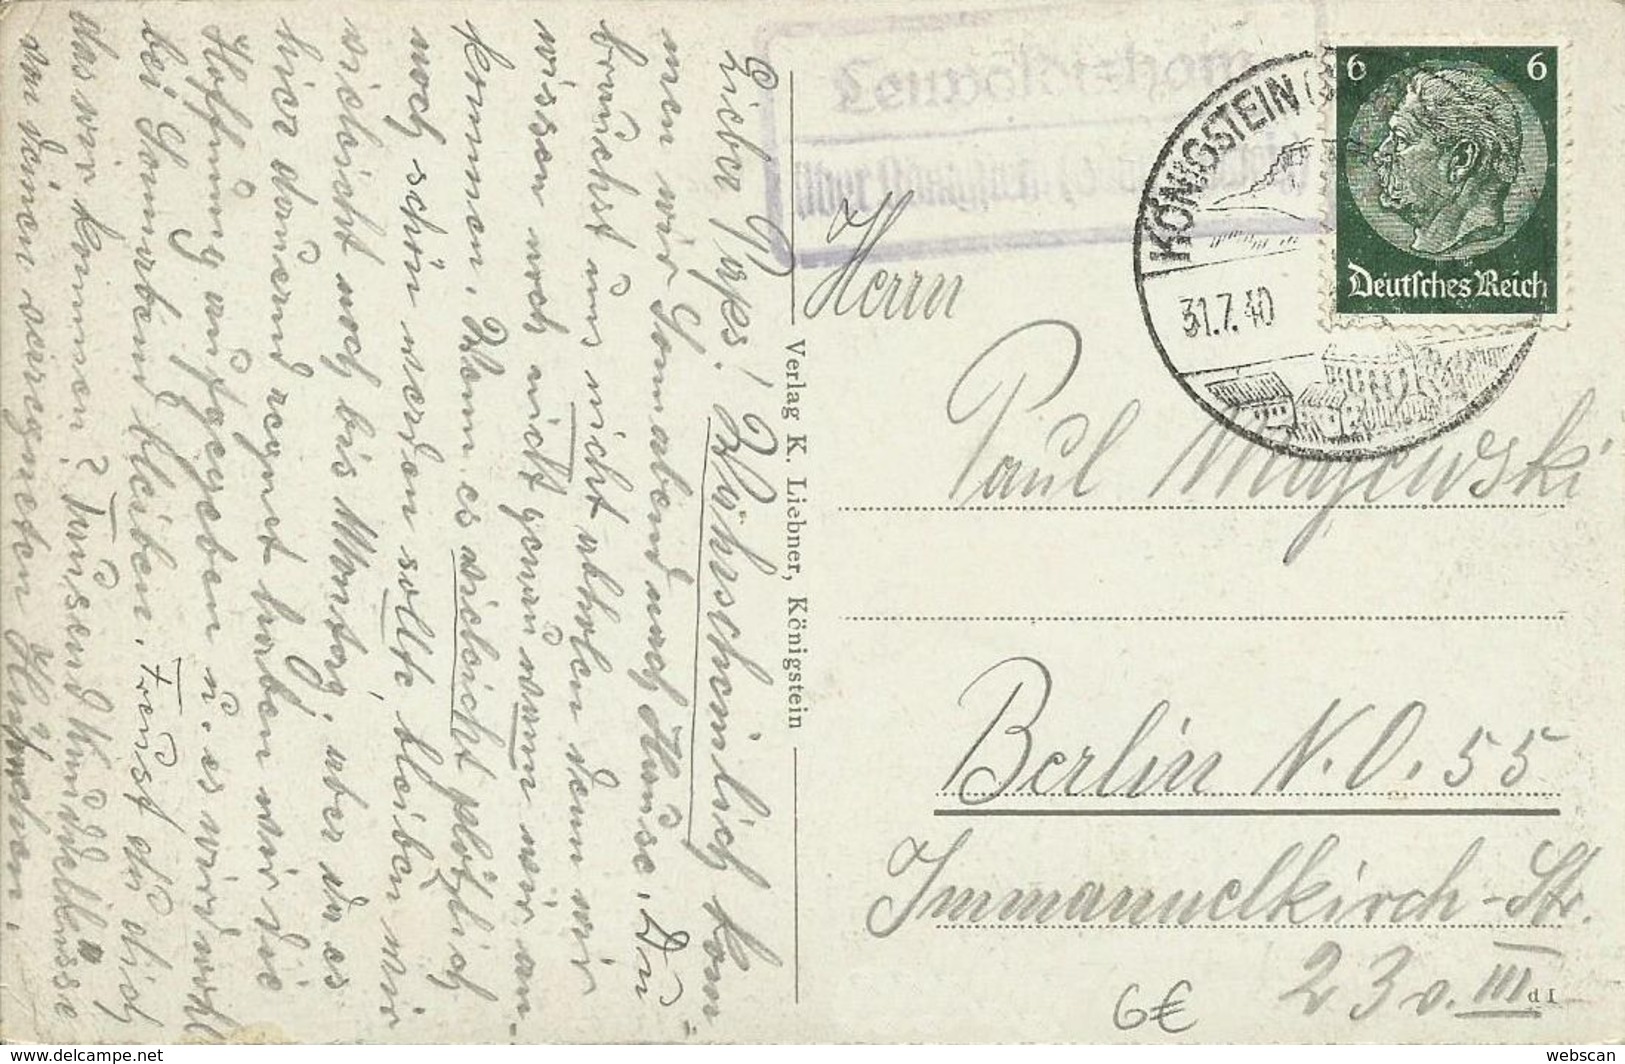 Lieber Paps! Wahrscheinlich kom=
men wir Sonnabend nach Hause. Du
brauchst uns nicht abholen denn wir
wissen noch nicht genau wann wir an-
kommen. Wenn es vieleicht plötzlich
noch schön werden sollte, bleiben wir
vieleicht noch bis Montag, aber da es
hier dauernd regnet haben wir die
Hoffnung aufgegeben u. es wird wohl
bei Sonnabend bleiben. Freust du dich
das wir kommen? Tausend Küsse
von deinen verregneten
Verlag K. Liebner, Königstein
über Königstein
KÖNIGSTEIN
31.7.40
6 6
Deutsches Reich
Herrn
Paul Majewski
Berlin N.O. 55
Immanuelkirch-Str.
23 v. III
d I
6€
webscan